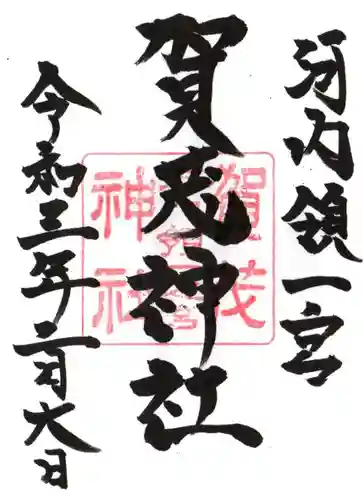 河内領一宮
賀茂神社
令和三年二月六日
賀茂
神社